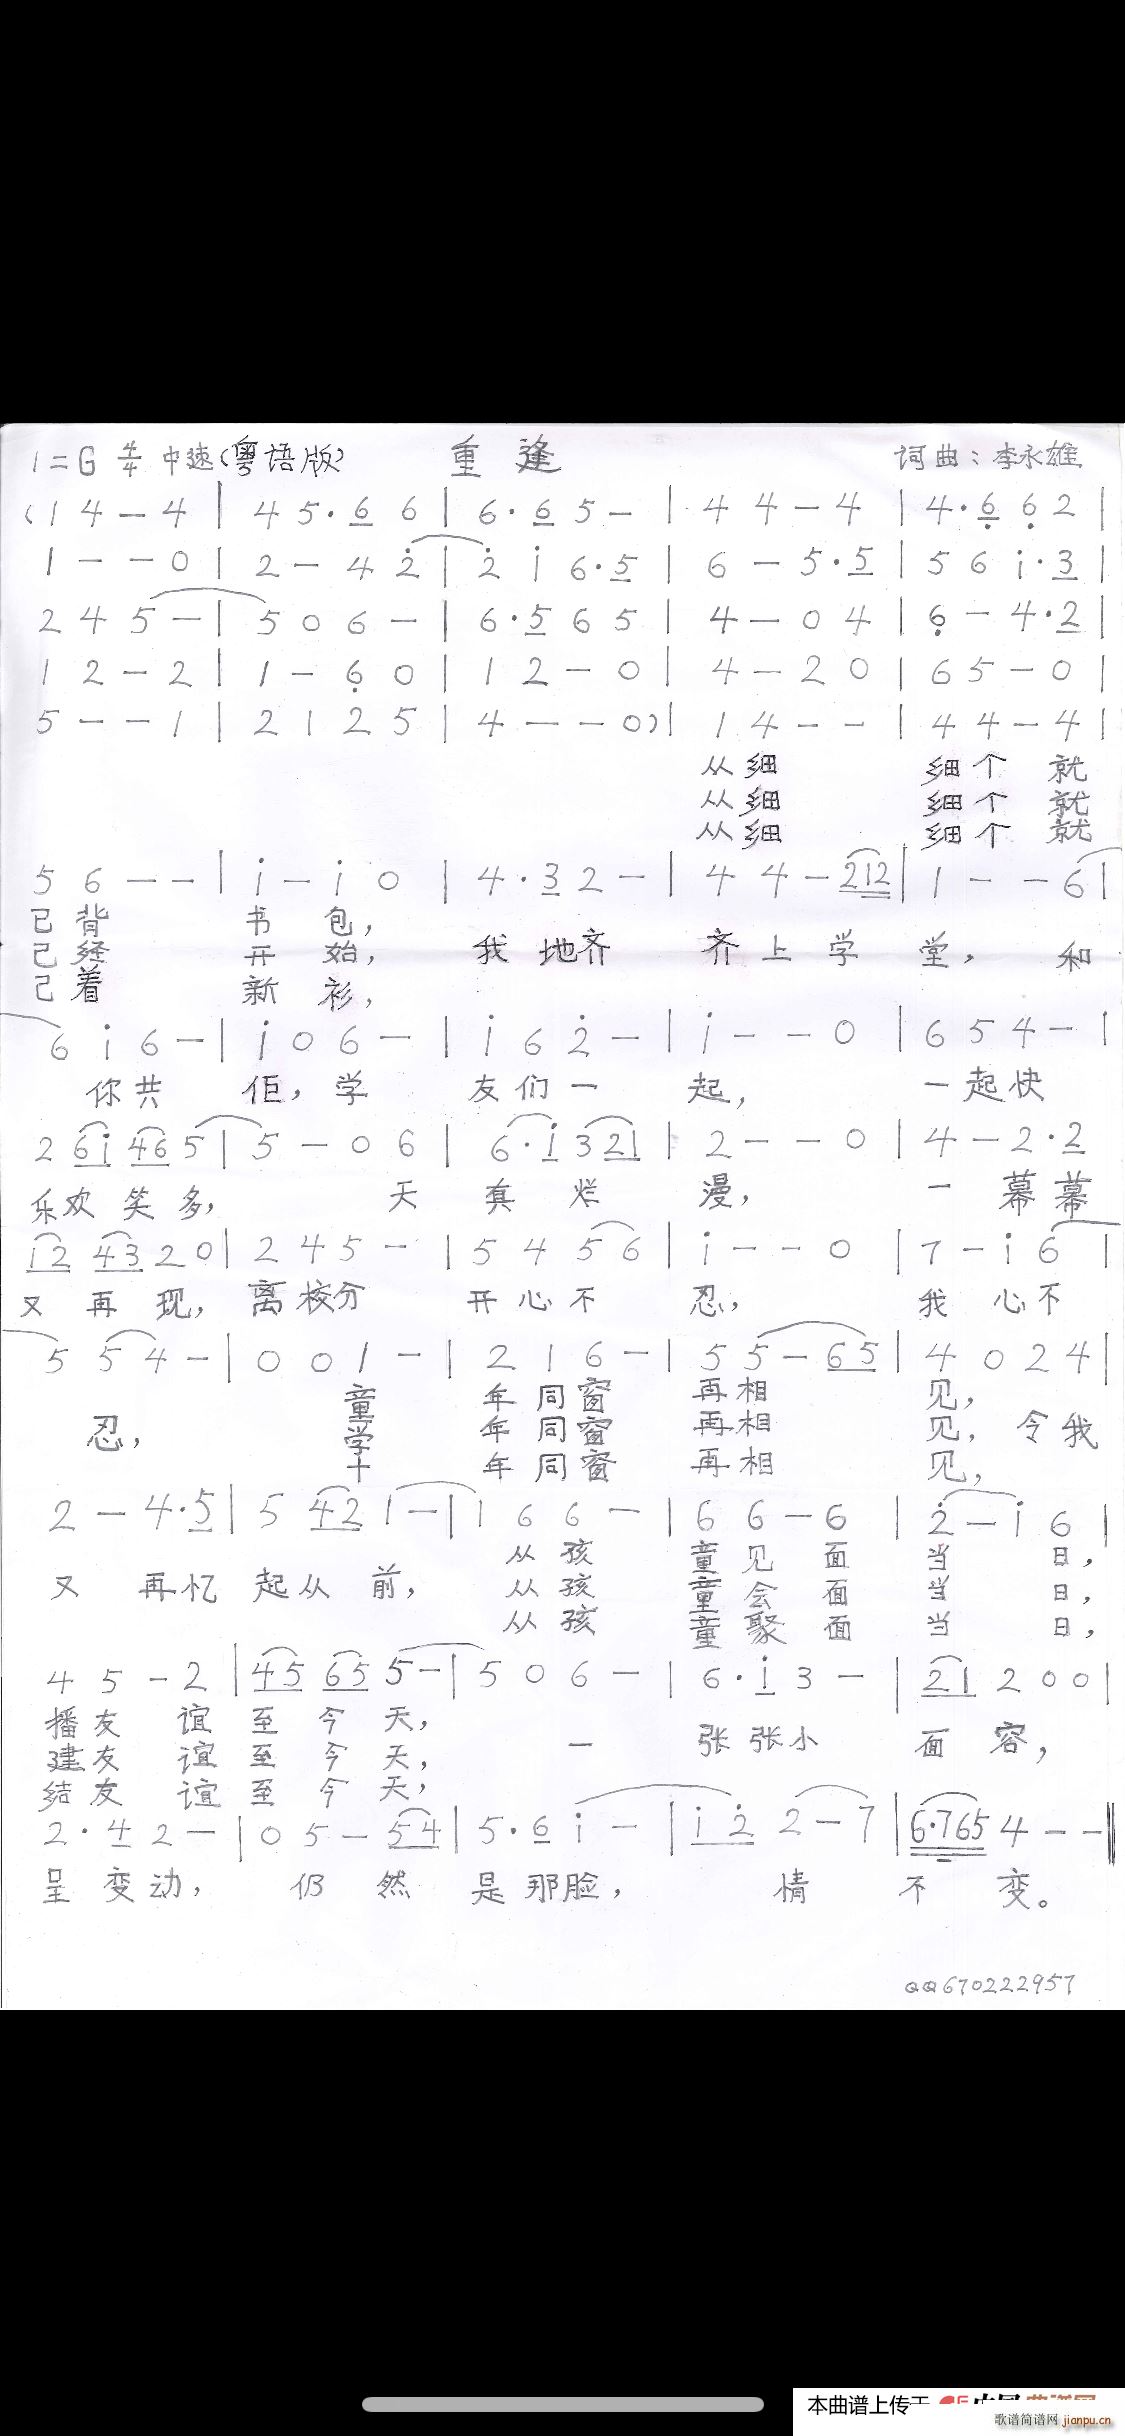 1=G 4/4 中速(粤语版) 重逢 词曲：李永雄
(1 4 — 4 | 4 5· 6 6 | 6· 6 5 — | 4 4 — 4 | 4· 6̣ 6̣ 2 |
1 — — 0 | 2 — 4 2̇ | 2̇ i 6· 5 | 6 — 5· 5 | 5 6 i· 3 |
2 4 5 — | 5 0 6 — | 6· 5 6 5 | 4 — 0 4 | 6̣ — 4· 2 |
1 2 — 2 | 1 — 6̣ 0 | 1 2 — 0 | 4 — 2 0 | 6 5 — 0 |
5 — — 1 | 2 1 2 5 | 4 — — 0) | 1 4 — — | 4 4 — 4 |
从细 细个 就
从细 细个 就
从细 细个 就
5 6 — — | i — i 0 | 4· 3 2 — | 4 4 — 212 | 1 — — 6 |
已背 书包，
已经 开始， 我地齐 齐上学 堂， 和
已着 新衫，
6 i 6 — | i 0 6 — | i 6 2̇ — | i — — 0 | 6 5 4 — |
你共 佢，学 友们一 起， 一起快
2 6i 46 5 | 5 — 0 6 | 6· i 3 21 | 2 — — 0 | 4 — 2· 2
乐欢笑多， 天 真烂 漫， 一幕幕
i2 43 2 0 | 2 4 5 — | 5 4 5 6 | i — — 0 | 7 — i 6 |
又再现，离校分 开心不 忍， 我心不
5 5 4 — | 0 0 1 — | 2 1 6 — | 5 5 — 65 | 4 0 2 4 |
童 年同窗 再相 见，
忍， 学 年同窗 再相 见，令我
十 年同窗 再相 见，
2 — 4· 5 | 5 42 1 — | 1 6 6 — | 6 6 — 6 | 2̇ — i 6 |
从孩 童见面 当日，
又再忆起从前， 从孩 童会面 当日，
从孩 童聚面 当日，
4 5 — 2 | 45 65 5 — | 5 0 6 — | 6· i 3 — | 21 2 0 0 |
播友谊至今天，
建友谊至今天， 一 张张小 面容，
结友谊至今天，
2· 4 2 — | 0 5 — 54 | 5· 6 i — | i 2̇ 2 — 7 | 6·765 4 — — ‖
呈变动， 仍然 是那脸， 情 不变。
QQ670222957
本曲谱上传于
歌谱简谱网 jianpu.cn